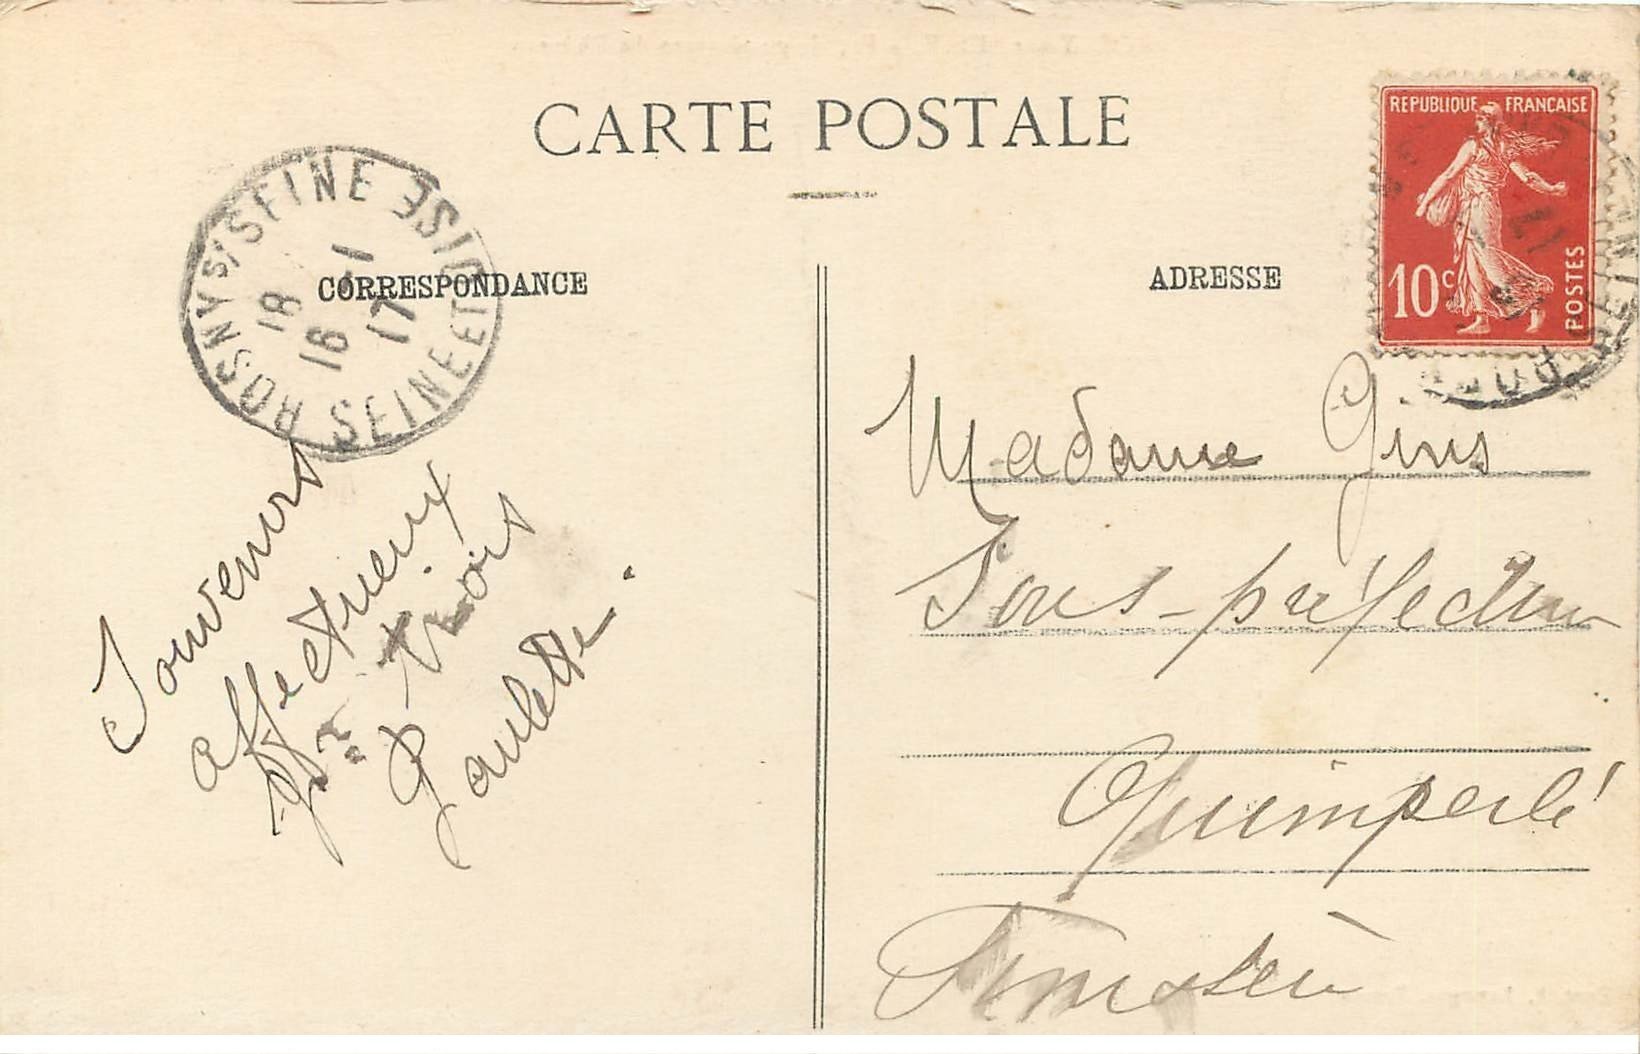 CARTE POSTALE
CORRESPONDANCE
ROSNY S/ SEINE
SEINE ET OISE
18
16 -1
17
Souvenirs
affectueux
à trois
Paulette.
ADRESSE
REPUBLIQUE FRANÇAISE
10c
POSTES
Madame Gins
Sous-préfecture
Quimperlé
Finistère